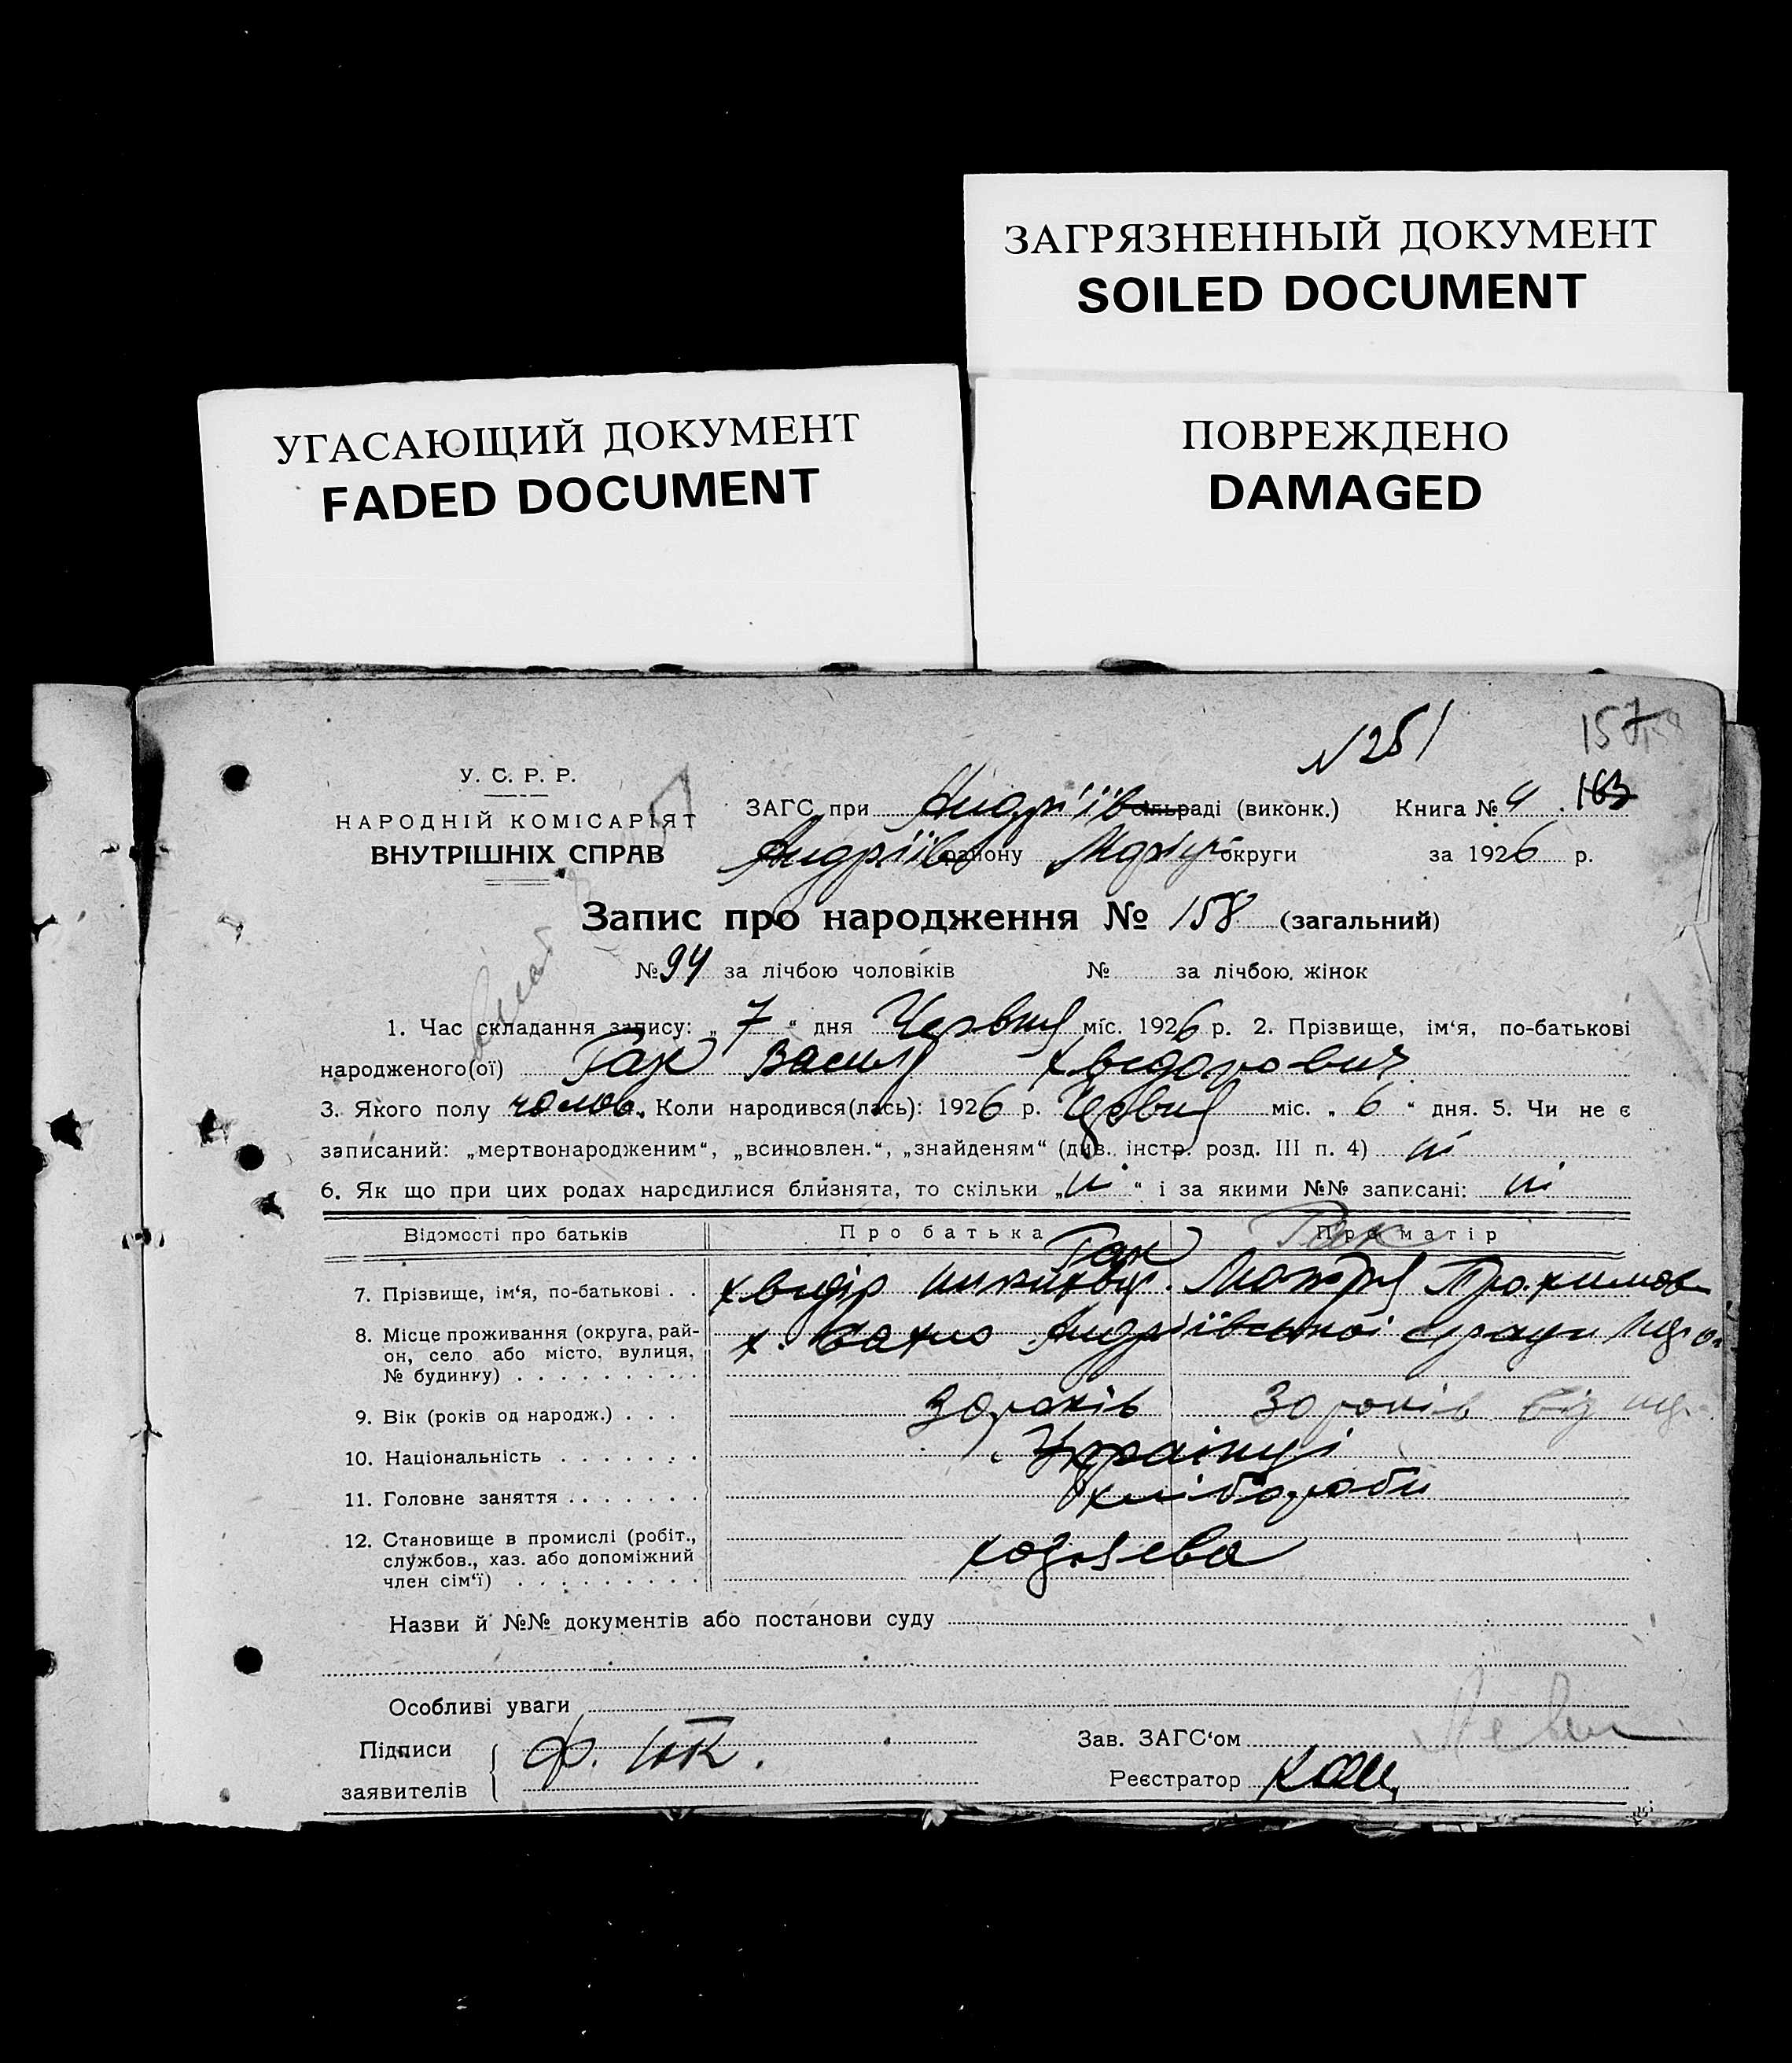 ЗАГРЯЗНЕННЫЙ ДОКУМЕНТ
SOILED DOCUMENT
УГАСАЮЩИЙ ДОКУМЕНТ
FADED DOCUMENT
ПОВРЕЖДЕНО
DAMAGED
N 251
157
У. С. Р. Р.
НАРОДНІЙ КОМІСАРІЯТ
ВНУТРІШНІХ СПРАВ
ЗАГС при Андріїв сільраді (виконк.) Книга № 4 163
Андріїв району округи за 1926 р.
Запис про народження № 158 (загальний)
№ 94 за лічбою чоловіків № за лічбою жінок
1. Час складання запису: „ 7 “ дня Червня міс. 1926 р. 2. Прізвище, ім‘я, по-батькові
народженого(ої) Гак Василь Хведорович
3. Якого полу чолов. Коли народився(лась): 1926 р. Червня міс. „ 6 “ дня. 5. Чи не є
записаний: „мертвонародженим“, „всиновлен.“, „знайденям“ (див. інстр. розд. III п. 4) ні
6. Як що при цих родах народилися близнята, то скільки „ ні “ і за якими №№ записані: ні
Відомості про батьків Про батька Про матір
Гак Гак
7. Прізвище, ім‘я, по-батькові . . Хведір Мотря
8. Місце проживання (округа, рай-
он, село або місто, вулиця,
№ будинку) х. Андріївської
9. Вік (років од народж.) . . . 30 років 30 років
10. Національність Українці
11. Головне заняття хлібороби
12. Становище в промислі (робіт.,
службов., хаз. або допоміжний
член сім‘ї) хозяева
Назви й №№ документів або постанови суду
Особливі уваги
Підписи
заявителів
Ф.
Зав. ЗАГС‘ом
Реєстратор